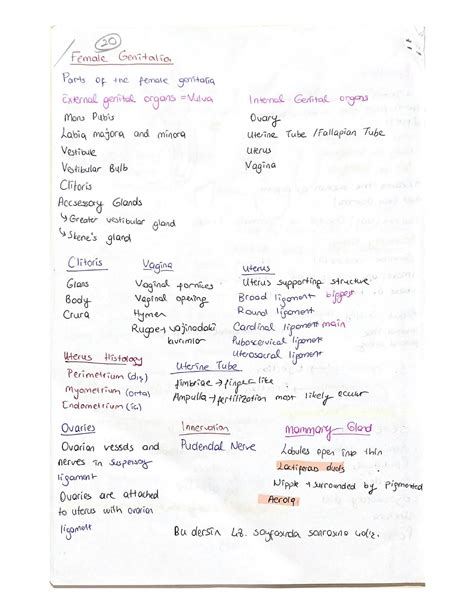 20
Female Genitalia
Parts of the female genitalia
External genital organs = Vulva
Mons Pubis
Labia majora and minora
Vestibule
Vestibular Bulb
Clitoris
Accsessory Glands
↳ Greater vestibular gland
↳ Skene's gland
Internal Genital organs
Ovary
Uterine Tube / Fallapian Tube
uterus
Vagina
Clitoris
Glans
Body
Crura
Vagina
Vaginal fornices
Vaginal opening
Hymen
Rugae → vajinadaki
kıvrımlar
Uterus
Uterus supporting structure
Broad ligament biggest
Round ligament
Cardinal ligament main
Pubocervical ligament
Uterosacral ligament
Uterus Histology
Perimetrium (dış)
Myometrium (orta)
Endometrium (iç)
Uterine Tube
fimbriae → finger like
Ampulla → fertilization most likely occur
Ovaries
Ovarian vessels and
nerves in suspensory
ligament
Ovaries are attached
to uterus with ovarian
ligament
Innervation
Pudendal Nerve
Mammary Gland
Lobules open into thin
Lactiferous ducts
Nipple → surrounded by pigmented
Aerola
Bu dersin 42. sayfasında